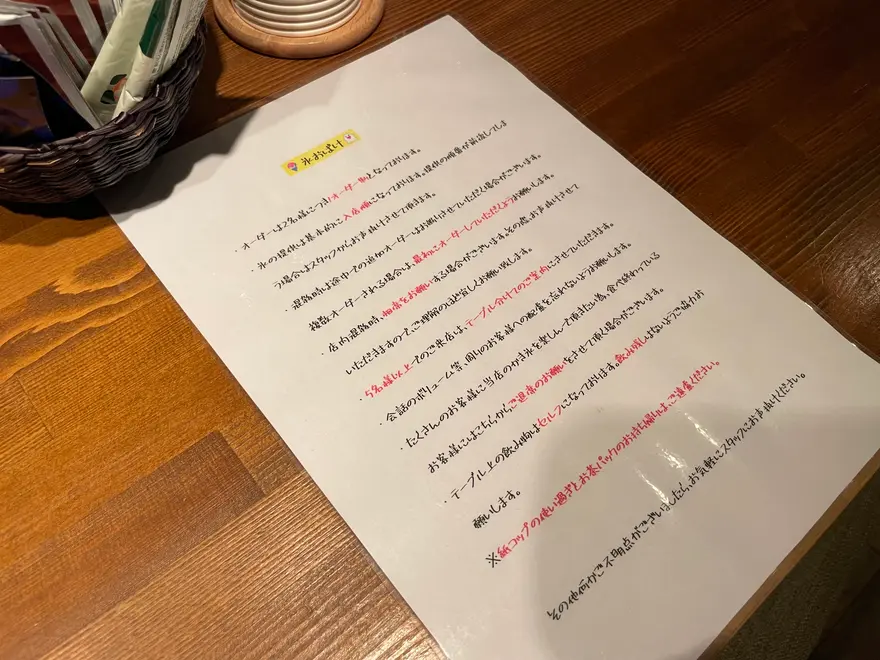 氷おばけ
・オーダーは2名様につき1オーダー制となっております。
氷の提供は基本的に入店順になっております。提供の順番が前後してしま
う場合はスタッフからお声掛けさせて頂きます。
・混雑時は途中での追加オーダーはお断りさせていただく場合がございます。
複数オーダーされる場合は、最初にオーダーしていただくようお願いします。
・店内混雑時、相席をお願いする場合がございます。その際、お声掛けさせて
いただきますので、ご理解のほど宜しくお願い致します。
・5名様以上でのご来店は、テーブル分けてのご案内にさせていただきます。
・会話のボリューム等、周りのお客様への配慮を忘れないようお願いします。
・たくさんのお客様に当店のかき氷を楽しんで頂きたい為、食べ終わっている
お客様にはこちらからご退席のお願いをさせて頂く場合がございます。
・テーブル上の飲み物はセルフになっております。飲み残しはないようご協力お
願いします。
※紙コップの使い過ぎとお茶パックのお持ち帰りはご遠慮ください。
その他何かご不明点がございましたら、お気軽にスタッフにお声掛けください。